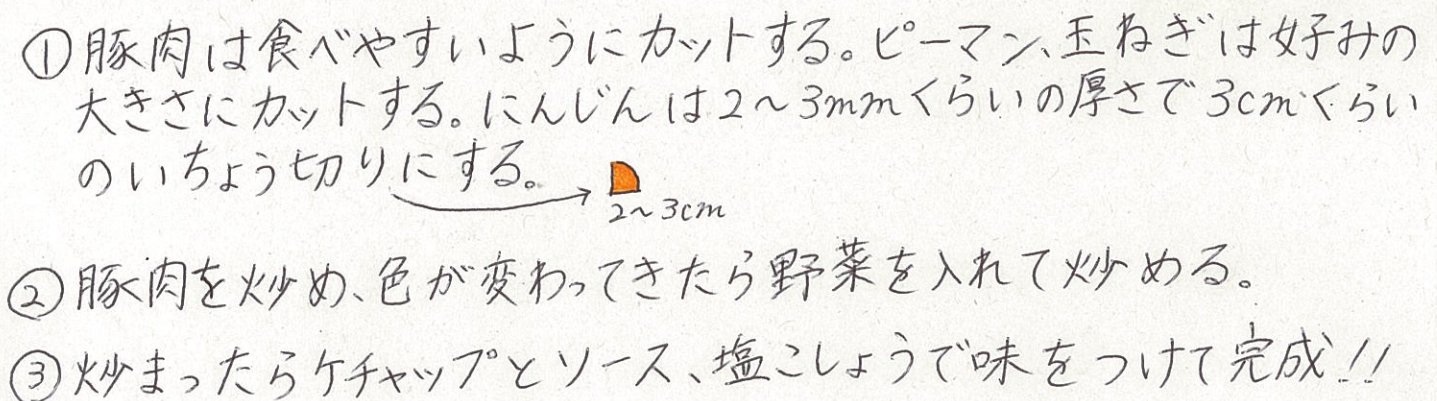 ①豚肉は食べやすいようにカットする。ピーマン、玉ねぎは好みの
大きさにカットする。にんじんは2～3mmくらいの厚さで3cmくらい
のいちょう切りにする。
2～3cm
②豚肉を炒め、色が変わってきたら野菜を入れて炒める。
③炒まったらケチャップとソース、塩こしょうで味をつけて完成!!